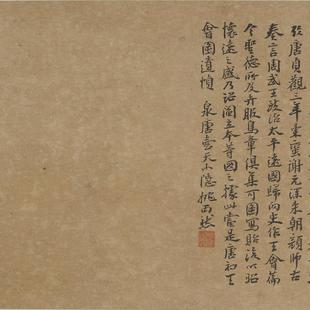 攷唐貞觀三年東蠻謝元深來朝顏師古
奏言周武王政治太平遠國歸向史作王會篇
今聖德所及卉服鳥章俱集可圖寫貽後以昭
懷遠之盛乃詔閻立本等圖之據此當是唐初王
會圖遺
泉唐